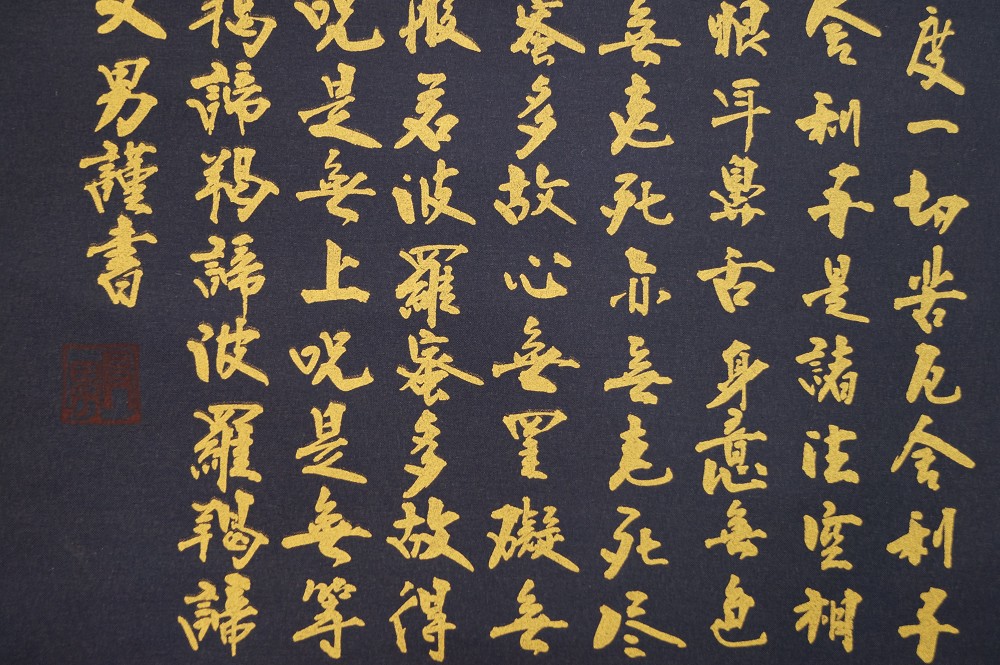 度一切苦厄舍利子
舍利子是諸法空相
眼耳鼻舌身意無色
無老死亦無老死尽
蜜多故心無罣礙無
般若波羅蜜多故得
呪是無上呪是無等
羯諦羯諦波羅羯諦
男謹書